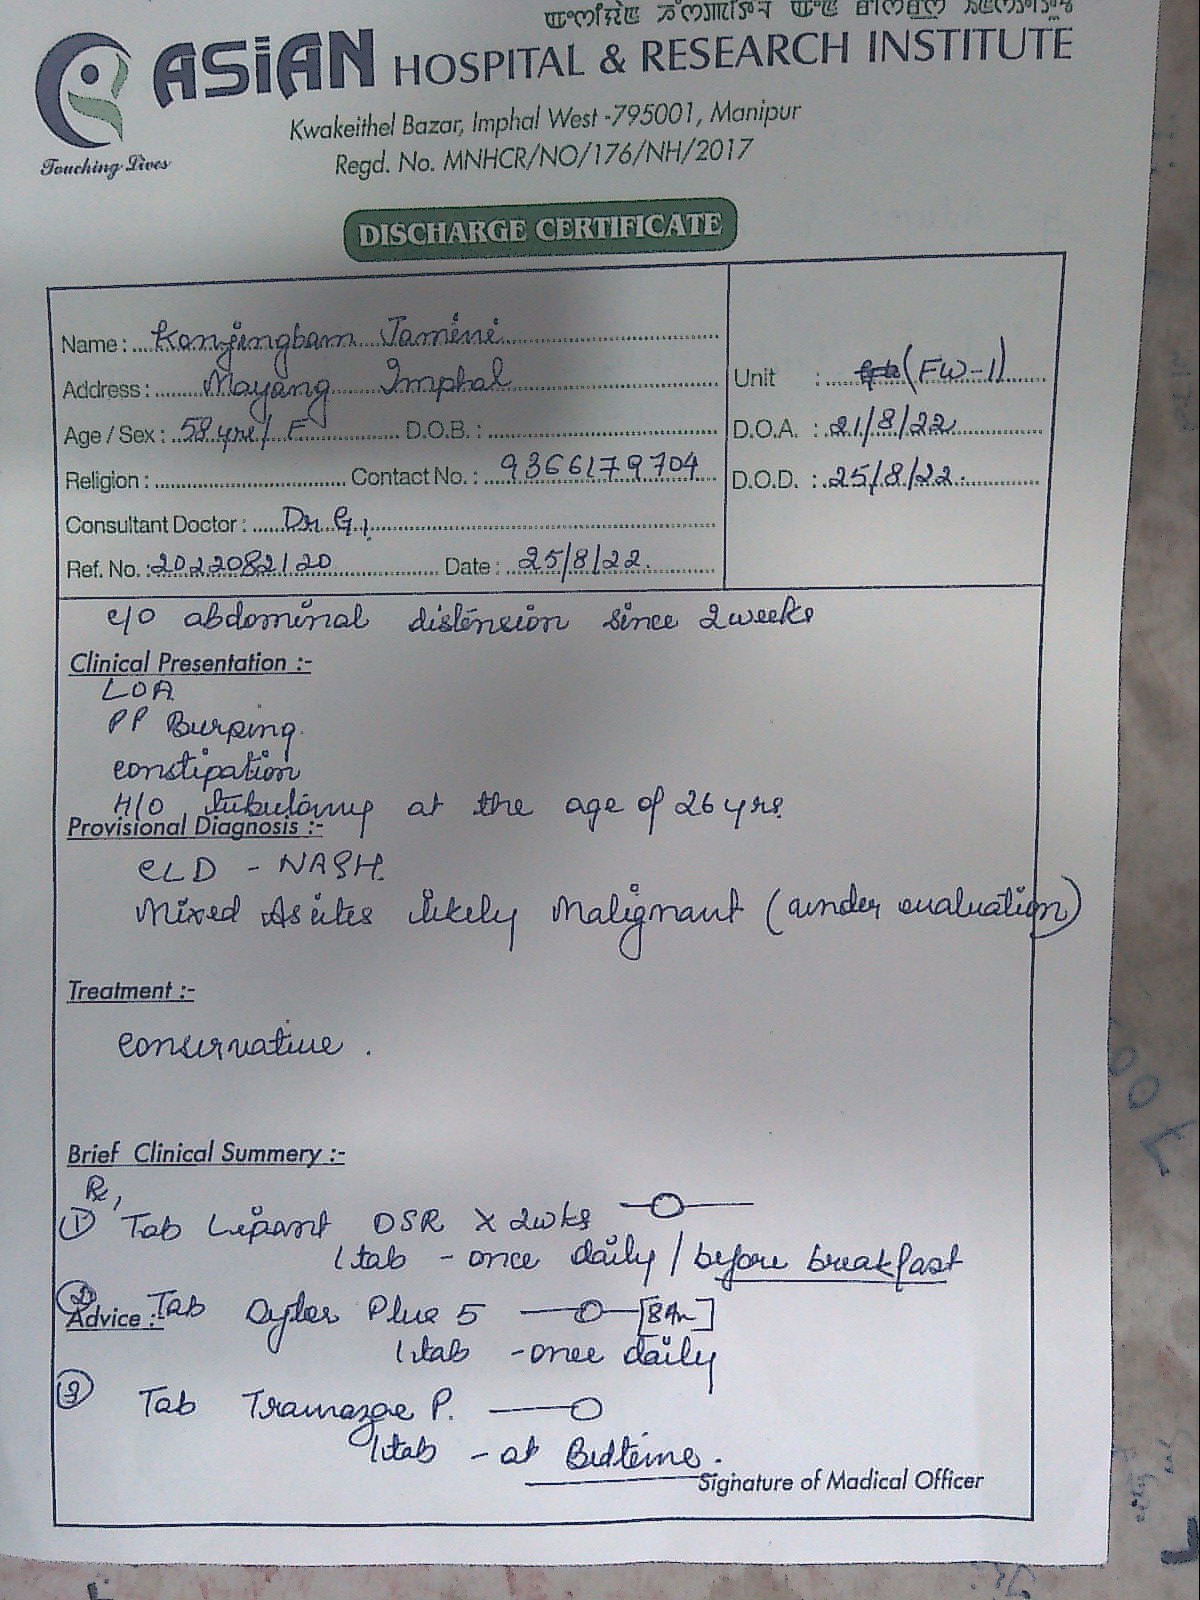 ASiAN HOSPITAL & RESEARCH INSTITUTE
Touching Lives
Kwakeithel Bazar, Imphal West -795001, Manipur
Regd. No. MNHCR/NO/176/NH/2017
DISCHARGE CERTIFICATE
Name : Konjengbam Jamini
Address : Mayang Imphal
Unit : (FW-1)
Age / Sex : 58 yrs / F D.O.B. :
D.O.A. : 21/8/22
Religion : Contact No. : 9366179704
D.O.D. : 25/8/22.
Consultant Doctor : Dr G.I.
Ref. No. : 2022082120 Date : 25/8/22.
c/o abdominal distension since 2 weeks
Clinical Presentation :-
LOA
PP Burping.
constipation
H/O at the age of 26 yrs.
Provisional Diagnosis :-
CLD - NASH.
Mixed Ascites likely Malignant (under evaluation)
Treatment :-
conservative .
Brief Clinical Summery :-
Rx,
① Tab DSR x 2wks
1 tab - once daily / before breakfast
② Tab Cytor Plus 5 [8Am]
Advice :-
1 tab - once daily
③ Tab P.
1 tab - at Bedtime.
Signature of Madical Officer